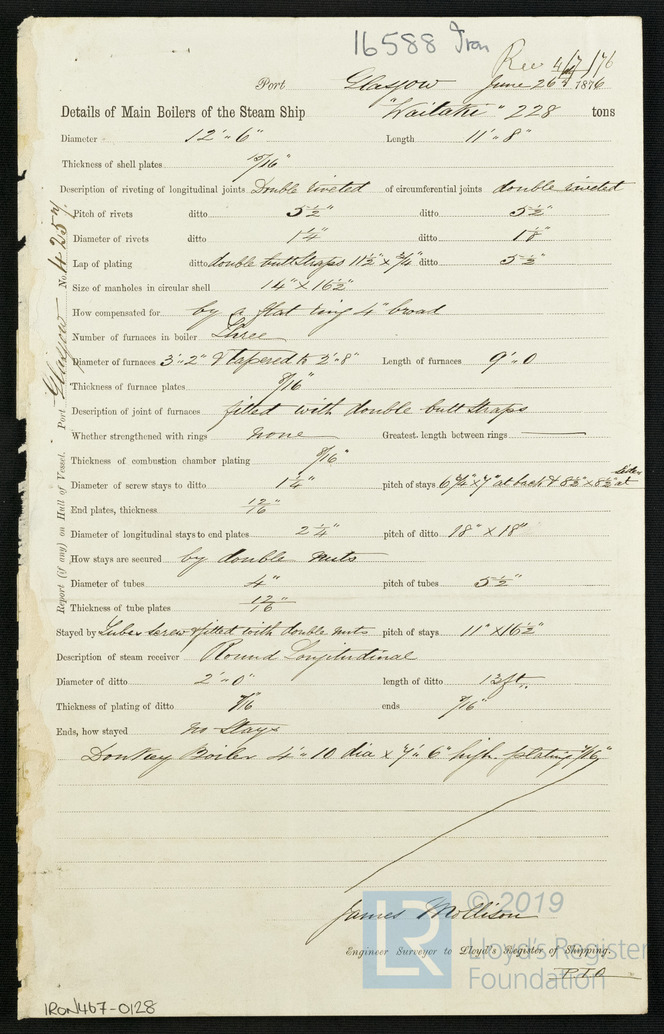 16588 Iron
Rec 4/7/76
Port Glasgow June 26th 1876
Details of Main Boilers of the Steam Ship "Waitaki" 228 tons
Diameter 12'„ 6" Length 11'„ 8"
Thickness of shell plates /16"
Description of riveting of longitudinal joints Double riveted of circumferential joints double riveted
Pitch of rivets ditto 5 1/2" ditto 5 1/2"
Diameter of rivets ditto 1 1/4" ditto
Lap of plating ditto double butt straps 11 1/2" x 3/4" ditto 5 1/2"
Size of manholes in circular shell 14" x 16 1/2"
How compensated for by a flat ring 4" broad
Number of furnaces in boiler Three
Diameter of furnaces 3'„ 2" & tapered to 2'„ 8" Length of furnaces 9'„ 0
Thickness of furnace plates 8/16"
Description of joint of furnaces fitted with double butt straps
Whether strengthened with rings none Greatest length between rings
Thickness of combustion chamber plating /16"
Diameter of screw stays to ditto 1 1/4" pitch of stays 6 3/4" x 7" at back & 8 1/2" x 8 1/2" at sides
End plates, thickness 12/16"
Diameter of longitudinal stays to end plates 2 1/4" pitch of ditto 18" x 18"
How stays are secured by double nuts
Diameter of tubes 4" pitch of tubes 5 1/2"
Thickness of tube plates 12/16"
Stayed by Tubes screw & fitted with double nuts pitch of stays 11" x 16 1/2"
Description of steam receiver Round Longitudinal
Diameter of ditto 2'„ 0" length of ditto 12ft.
Thickness of plating of ditto 7/16 ends 7/16"
Ends, how stayed no Stays
Donkey Boiler 4'„ 10 dia x 7'„ 6" high. plating 7/16"
James Mollison
Engineer Surveyor to Lloyd's Register of Shipping.
P.T.O
Report (if any) on Hull of Vessel. Port Glasgow No. 4257
IRON467-0128
LR © 2019
Lloyd's Register
Foundation